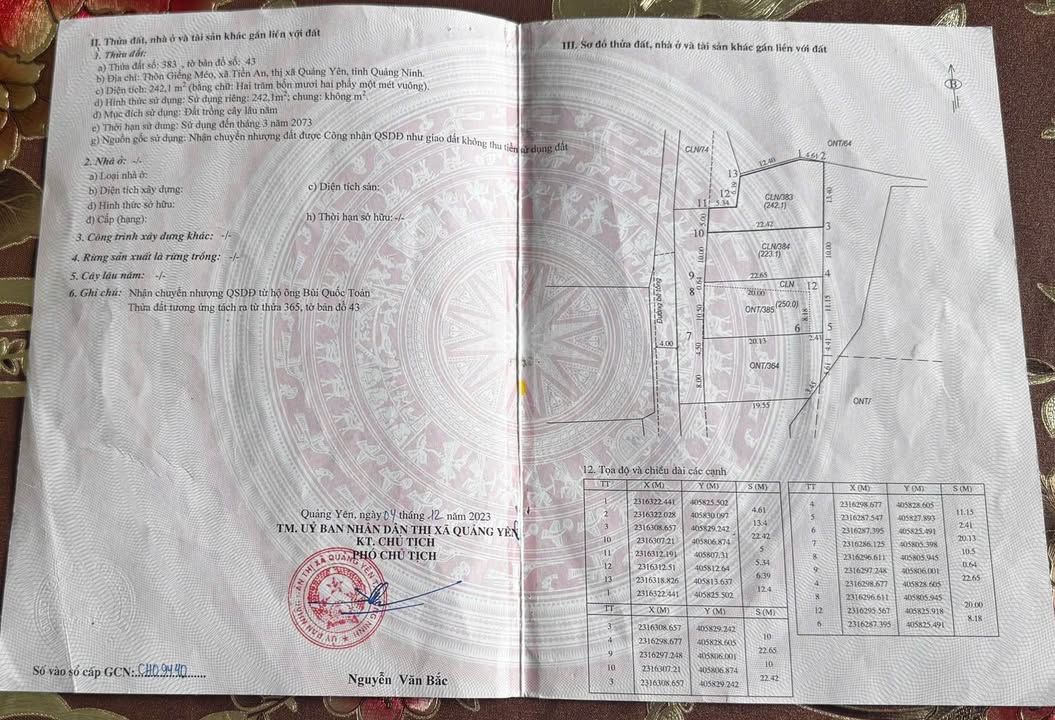 II. Thửa đất, nhà ở và tài sản khác gắn liền với đất
1. Thửa đất:
a) Thửa đất số: 383 , tờ bản đồ số: 43
b) Địa chỉ: Thôn Giếng Méo, xã Tiền An, thị xã Quảng Yên, tỉnh Quảng Ninh.
c) Diện tích: 242,1 m² (bằng chữ: Hai trăm bốn mươi hai phẩy một mét vuông).
d) Hình thức sử dụng: Sử dụng riêng: 242,1m²; chung: không m².
đ) Mục đích sử dụng: Đất trồng cây lâu năm
e) Thời hạn sử dụng: Sử dụng đến tháng 3 năm 2073
g) Nguồn gốc sử dụng: Nhận chuyển nhượng đất được Công nhận QSDĐ như giao đất không thu tiền sử dụng đất
2. Nhà ở: -/-
a) Loại nhà ở:
b) Diện tích xây dựng:
c) Diện tích sàn:
d) Hình thức sở hữu:
đ) Cấp (hạng):
h) Thời hạn sở hữu: -/-
3. Công trình xây dựng khác: -/-
4. Rừng sản xuất là rừng trồng: -/-
5. Cây lâu năm: -/-
6. Ghi chú: Nhận chuyển nhượng QSDĐ từ hộ ông Bùi Quốc Toán
Thửa đất tương ứng tách ra từ thửa 365, tờ bản đồ 43
Quảng Yên, ngày 04 tháng 12 năm 2023
TM. UỶ BAN NHÂN DÂN THỊ XÃ QUẢNG YÊN
KT. CHỦ TỊCH
PHÓ CHỦ TỊCH
Nguyễn Văn Bắc
Số vào sổ cấp GCN: CH09440
III. Sơ đồ thửa đất, nhà ở và tài sản khác gắn liền với đất
B
ONT/64
CLN/74
1 4.61 2
12.40
13
6.39
12
5.34
11
CLN/383
(242.1)
13.40
5.00
22.42
3
10
CLN/384
(223.1)
10.00
10.00
9
22.65
4
0.64
CLN
12
8
20.00
ONT/385
(250.0)
11.15
8.18
10.50
Đường bê tông
6
5
7
20.13
2.41
4.00
4.50
4.41
ONT/364
8.00
19.55
ONT/
12. Tọa độ và chiều dài các cạnh
TT X (M) Y (M) S (M)
1 2316322.441 405825.502
4.61
2 2316322.028 405830.097
13.4
3 2316308.657 405829.242
22.42
10 2316307.21 405806.874
5
11 2316312.191 405807.31
5.34
12 2316312.51 405812.64
6.39
13 2316318.826 405813.637
12.4
1 2316322.441 405825.502
TT X (M) Y (M) S (M)
3 2316308.657 405829.242
10
4 2316298.677 405828.605
22.65
9 2316297.248 405806.001
10
10 2316307.21 405806.874
22.42
3 2316308.657 405829.242
TT X (M) Y (M) S (M)
4 2316298.677 405828.605
11.15
5 2316287.547 405827.893
2.41
6 2316287.395 405825.491
20.13
7 2316286.125 405805.398
10.5
8 2316296.611 405805.945
0.64
9 2316297.248 405806.001
22.65
4 2316298.677 405828.605
8 2316296.611 405805.945
20.00
12 2316295.567 405825.918
8.18
6 2316287.395 405825.491